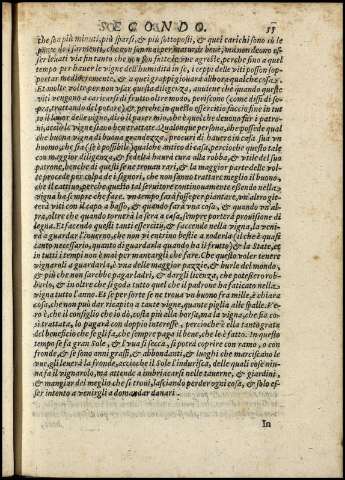 SECONDO. 55
che son più minuti, più sparsi, & più sottoposti, & quei carichi sono sù le
ser leuati via fin tanto che non son fatte le vue agreste, perche fino a quel
tempo per hauer le vigne dell'humidità in se, i ceppi delle viti posson sop-
portar mediocremente, & a quei grappi giouarà all'hora qualche cosa.
Et molte volte per non vsar questa diligenza, auuiene che quando queste
viti vengono a caricarsi di frutto oltre modo, periscono (come dissi di so-
pra, trattando del potare) & perche in questo essercitio faccin fine in tut-
to il lauor delle vigne, dirò il parer mio, che è quel che deuono far i pa-
troni, acciò le vigne siano ben trattate. Qualunque persona, che possede qual
che buona vigna di buona grandezza, procuri di hauer in casa sua vn
huomo, che sia (se è possibile) qualche antico di casa, percioche questo tale
con maggior diligenza, & fedeltà hauerà cura alla robba, & vtile del suo
patrone, benche di questi se ne trouan rari, & la maggior parte delle vol-
te procede per colpa de i signori, che non sanno trattare meglio il buono,
che il cattiuo, perche questo tal seruitore continouamente essendo nella
vigna ha sempre che fare. vn tempo farà fosse per piantare, vn'altro git-
terà viti con il capo a basso, & quando farà vna cosa, & quando vn'al-
tra, oltre che quando tornerà la sera a casa, sempre porterà prouisione di
legna. Et facendo questi tanti essercitij, & facendo nella vigna, la veni-
rà a guardar l'inuerno, che non vi entrino bestie a roderla (che è quasi
tanto necessario, quanto di guardarla quando ha il frutto) & la State, et
in tutti i tempi non è mai per mancargli che fare. Che questo voler tenere
vignaroli a guardarsi, è vna delle maggior pazzie, & burle del mondo,
& più che non sarebbe pagar ladri, & dargli licenza, che potessero rob-
barlo, & in oltre che si goda tutto quel che il padrone ha faticato nella
vigna tutto l'anno. Et se per sorte se ne troua vn buono fra mille, è chiara
cosa, che non può dar ricapito a tante vigne, quante piglia alle spalle. Pe-
rò è, che il consiglio che io dò, costa più alla borsa, ma la vigna, che sia co-
sì trattata, lo pagarà con doppio interesse, percioche è tal a tontagrata
del beneficio che se gli fa, che sempre paga il bene, che le è fatto. In questo
tempo se fa gran Sole, & l'vua si secca, si potrà coprire con ramo, o con
fronde, & se sono anni grassi, & abbondanti, & luoghi che marciscano le
vue, gli leuerà la fronde, acciò che il Sole l'indurisca, delle quali cose niu-
na fa il vignarolo, ma attende a imbriacarsi nelle tauerne, & giardini,
& mangiar dei meglio che si troui, lasciando perder ogni cosa, & solo es-
ser intento a venirgli a domandar danari.
In